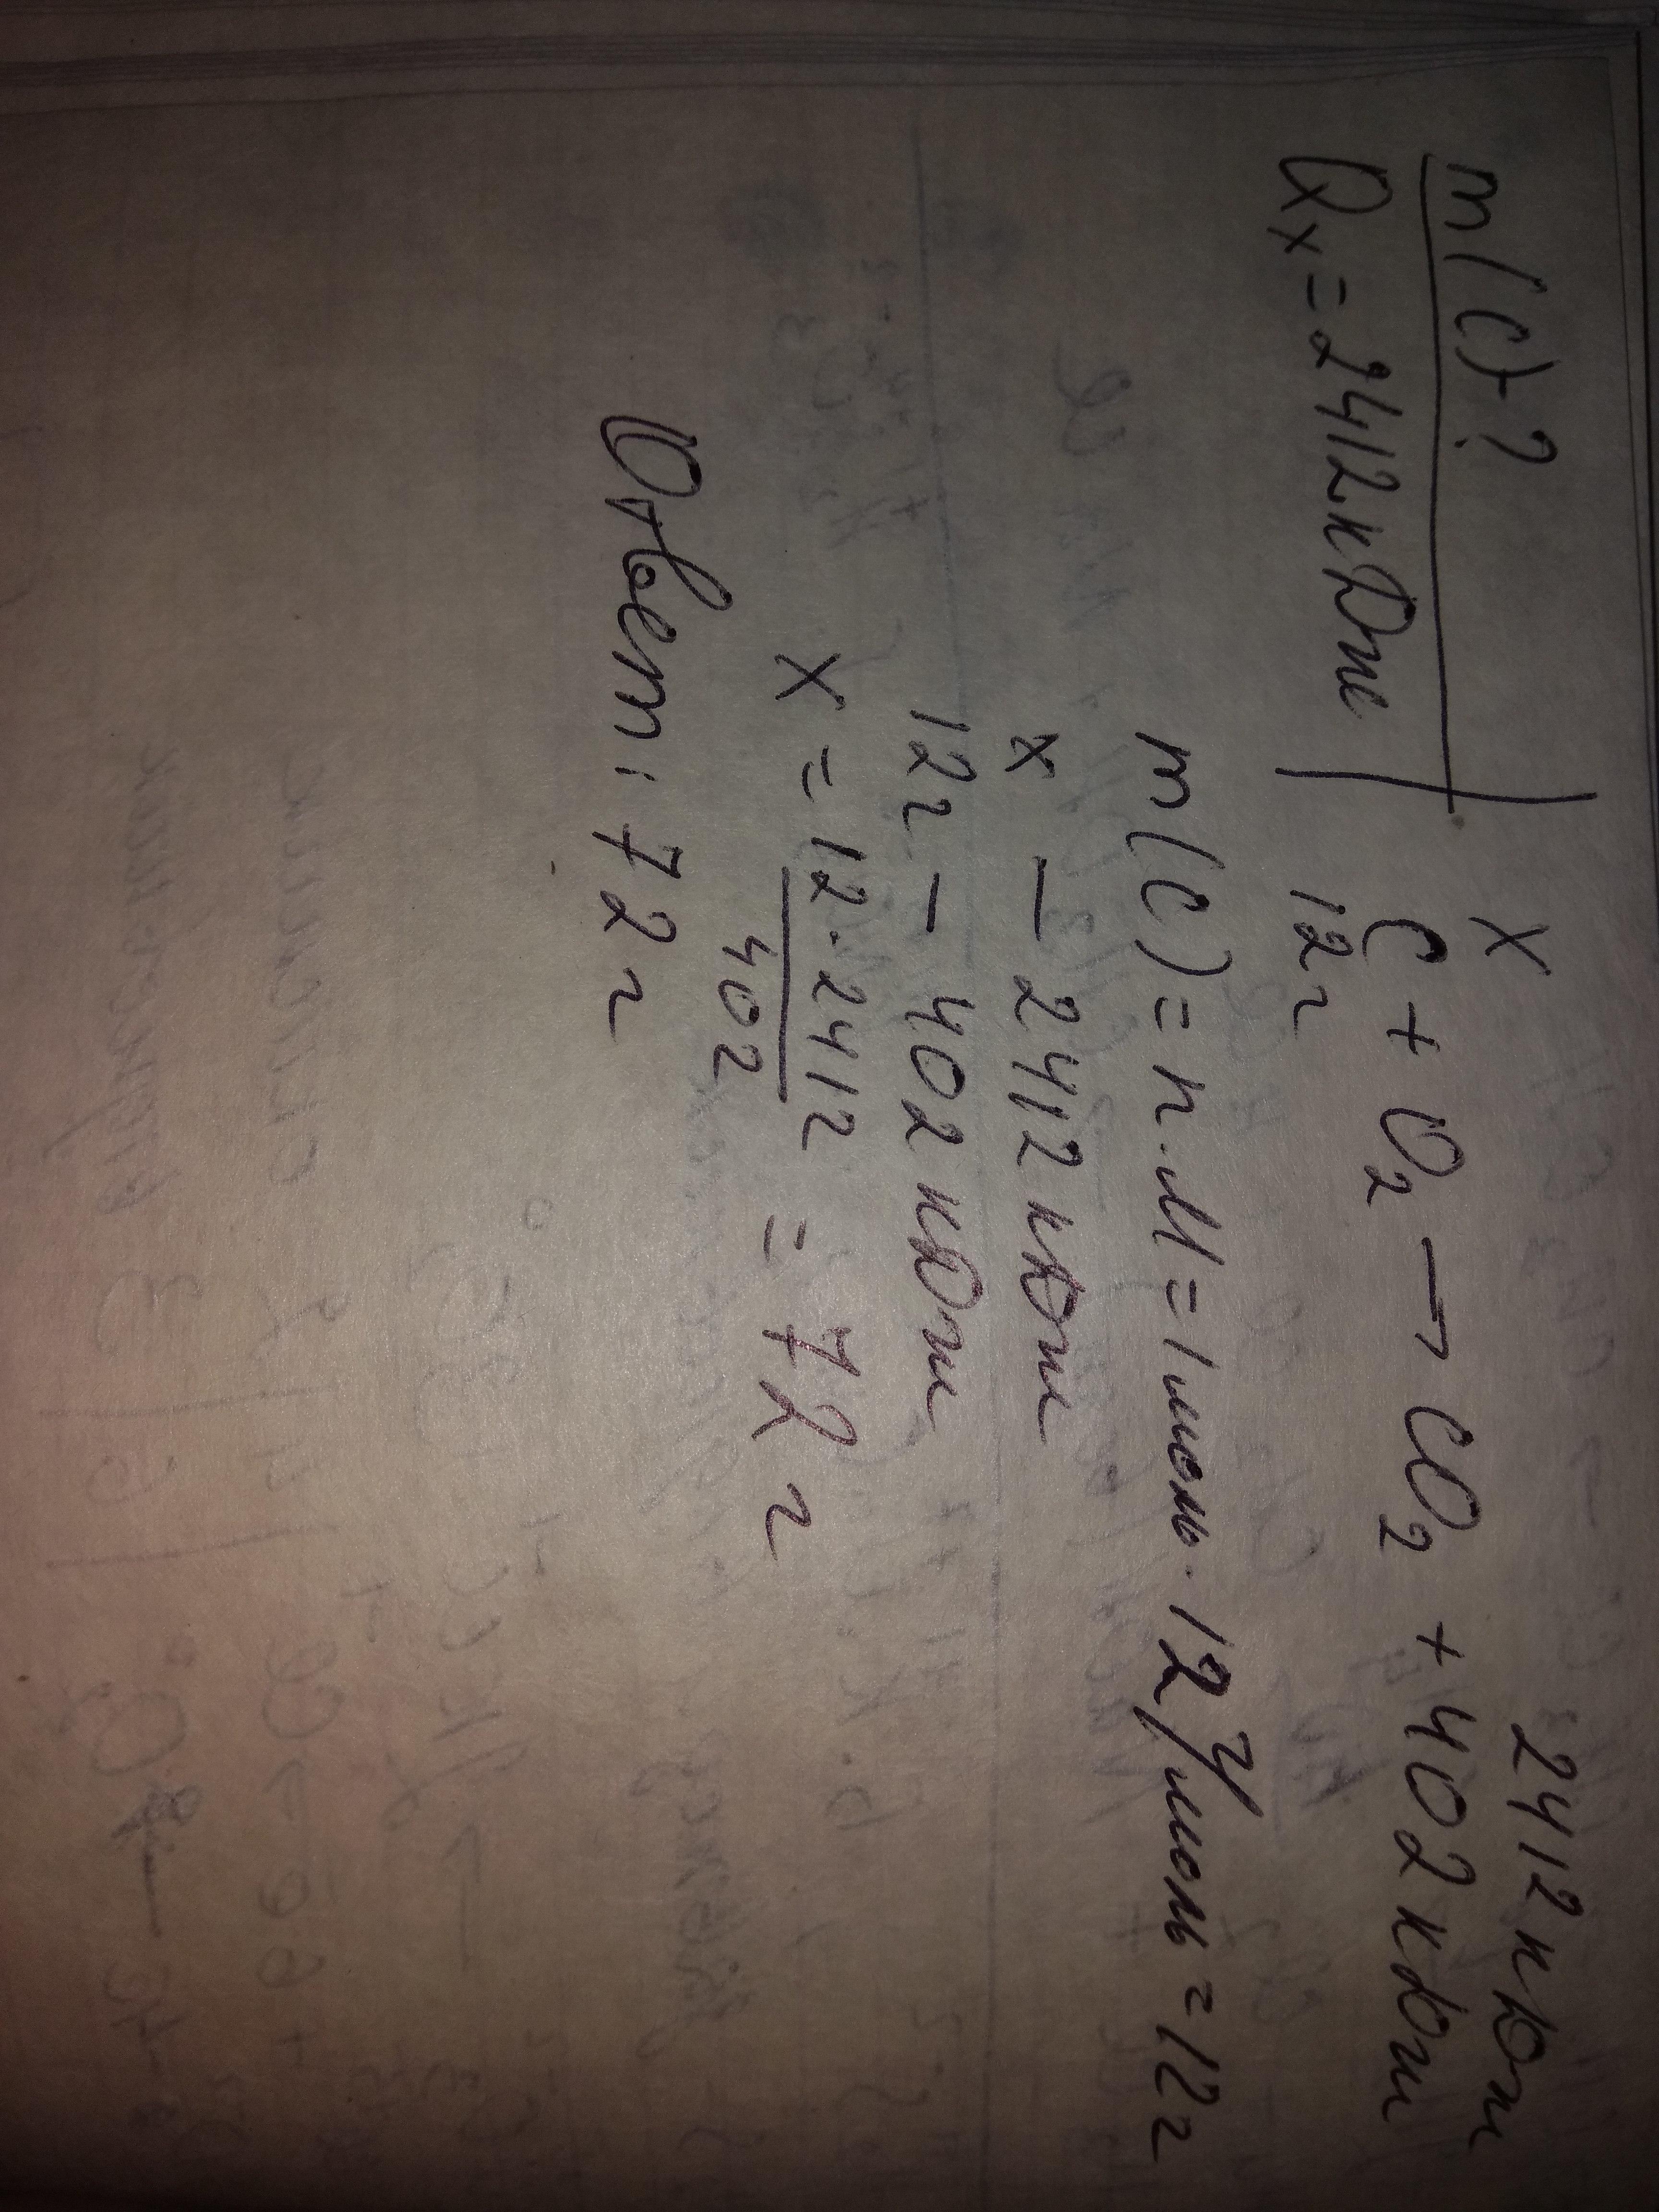 m(C)-?
Qx = 2412 кДж
x 2412 кДж
C + O₂ → CO₂ + 402 кДж
12 г
m(C) = n·M = 1 моль · 12 г/моль = 12 г
x – 2412 кДж
12 г – 402 кДж
x = 12·2412 / 402 = 72 г
Ответ: 72 г